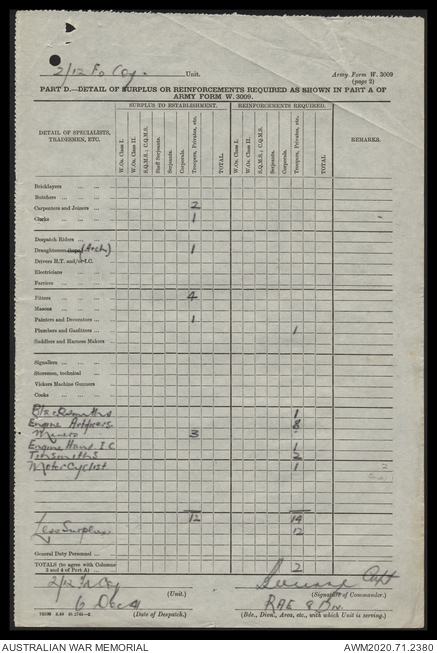 2/12 Fd Coy. Unit. Army Form W. 3009
(page 2)
PART D.—DETAIL OF SURPLUS OR REINFORCEMENTS REQUIRED AS SHOWN IN PART A OF
ARMY FORM W. 3009.
DETAIL OF SPECIALISTS, TRADESMEN, ETC. SURPLUS TO ESTABLISHMENT. REINFORCEMENTS REQUIRED. REMARKS.
W.Os. Class I. W.Os. Class II. S.Q.M.S.; C.Q.M.S. Staff Serjeants. Serjeants. Corporals. Troopers, Privates, etc. TOTAL. W.Os. Class I. W.Os. Class II. S.Q.M.S.; C.Q.M.S. Serjeants. Corporals. Troopers, Privates, etc. TOTAL
Bricklayers ... ... ...
Butchers ... ... ...
Carpenters and Joiners ... ... 2
Clerks ... ... ... 1
Despatch Riders ... ... ...
Draughtsmen (Arch) 1
Drivers H.T. and/or I.C. ...
Electricians ... ... ...
Farriers ... ... ...
Fitters ... ... ... 4
Masons ... ... ...
Painters and Decorators ... ... 1
Plumbers and Gasfitters ... ... 1
Saddlers and Harness Makers ...
Signallers ... ... ...
Storemen, technical ... ...
Vickers Machine Gunners ...
Cooks ... ... ...
Blacksmiths 1
Engine Artificers 8
Miners 3
Engine Hand. I C 1
Tinsmiths 2
Motor Cyclist 1 2
12 14
Less Surplus. 12
General Duty Personnel ... ...
TOTALS (to agree with Columns
3 and 4 of Part A) ... ... 2
2/12 Fd Coy (Unit.) Capt (Signature of Commander.)
6 Dec 41 (Date of Despatch.) RAE 8 Div.
(Bde., Divn., Area, etc., with which Unit is serving.)
AUSTRALIAN WAR MEMORIAL AWM2020.71.2380